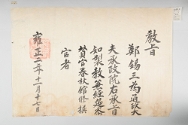 教旨
鄭錫三為通政大
夫承政院右承旨
知製教兼經筵參
贊官春秋館修撰
官者
雍正二年十一月十七日